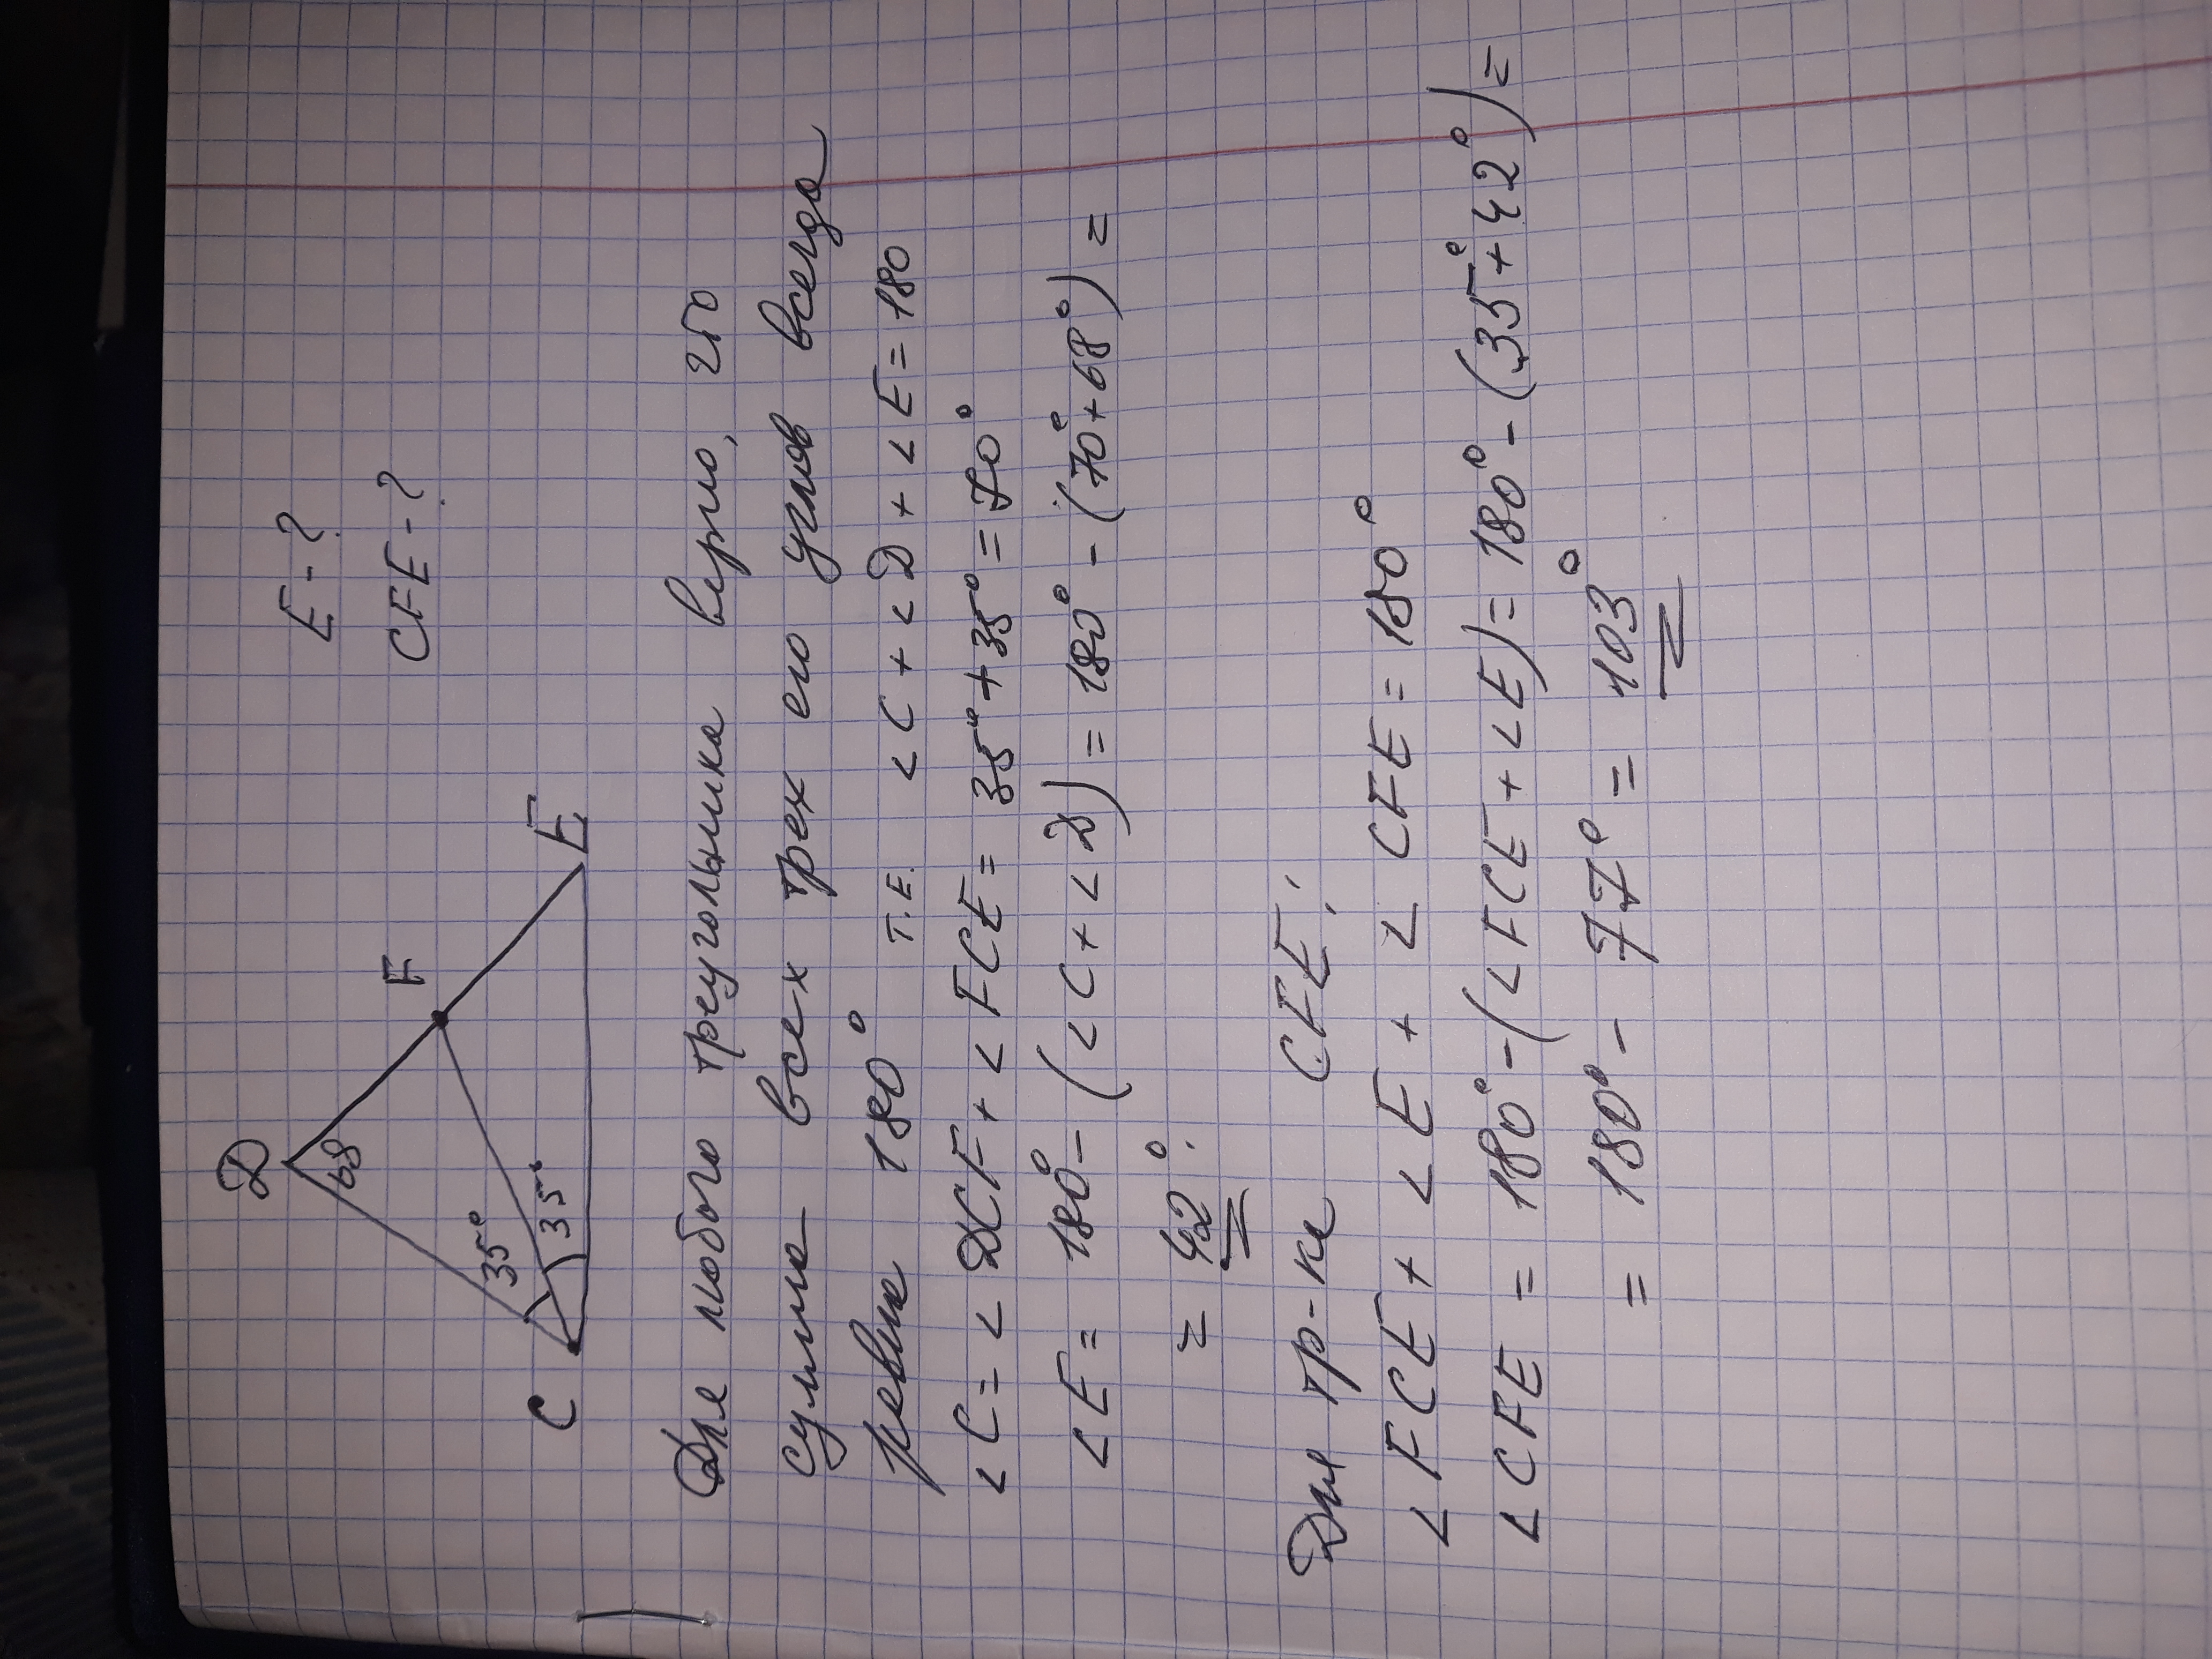 D
E - ?
F
CFE - ?
68
35°
35°
C
E
Для любого треугольника верно, что
сумма всех трех его углов всегда
равна 180° т.е. ∠C + ∠D + ∠E = 180
∠C = ∠DCF + ∠FCE = 35° + 35° = 70°
∠E = 180° - (∠C + ∠D) = 180° - (70° + 68°) =
= 42°.
Для тр-ка CFE:
∠FCE + ∠E + ∠CFE = 180°
∠CFE = 180° - (∠FCE + ∠E) = 180° - (35° + 42°) =
= 180° - 77° = 103°